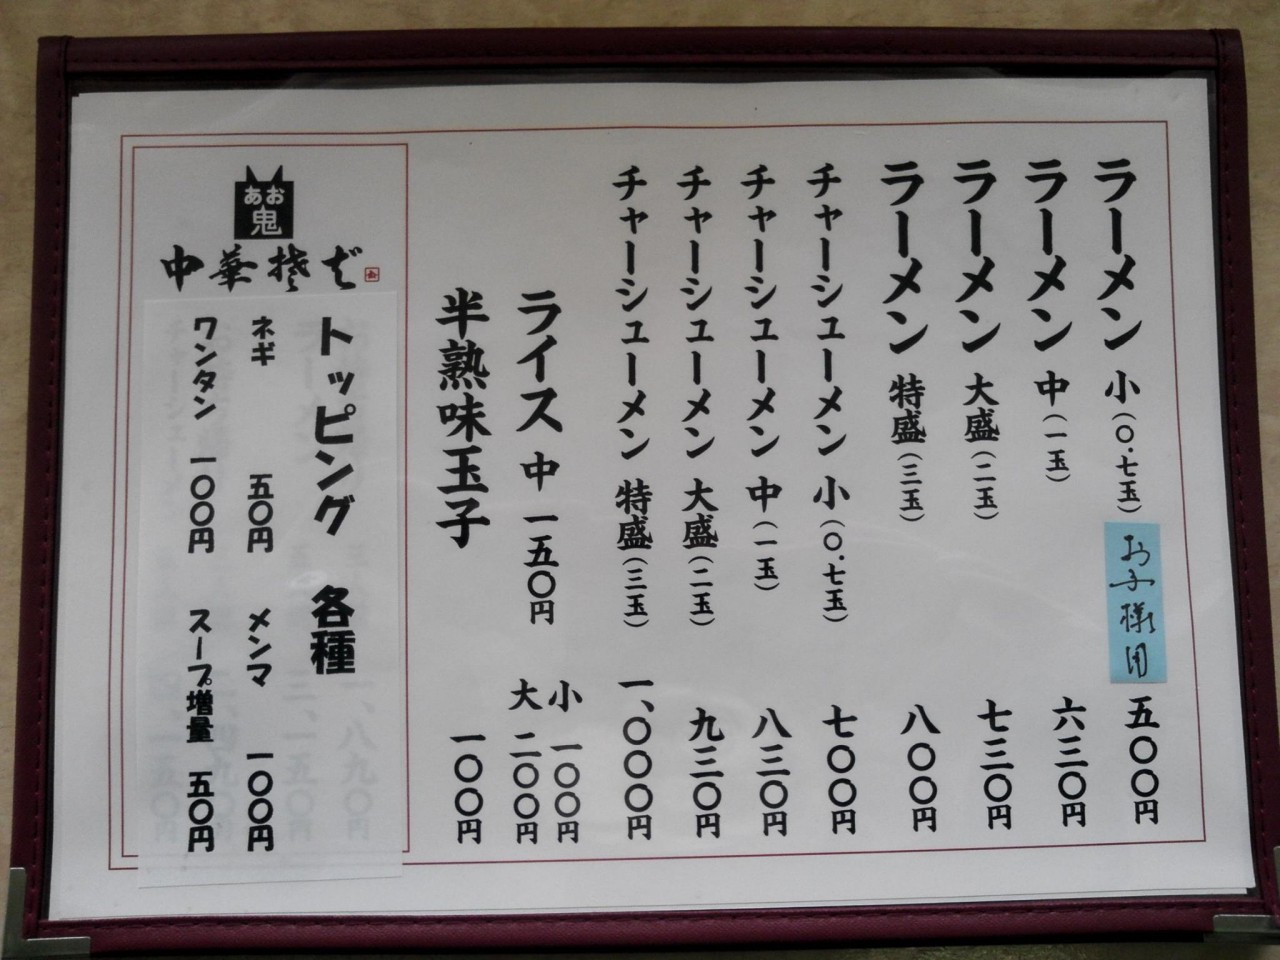 ラーメン 小(〇.七玉) お子様用 五〇〇円
ラーメン 中(一玉) 六三〇円
ラーメン 大盛(二玉) 七三〇円
ラーメン 特盛(三玉) 八〇〇円
チャーシューメン 小(〇.七玉) 七〇〇円
チャーシューメン 中(一玉) 八三〇円
チャーシューメン 大盛(二玉) 九三〇円
チャーシューメン 特盛(三玉) 一、〇〇〇円
ライス 中 一五〇円
小 一〇〇円
大 二〇〇円
半熟味玉子 一〇〇円
あお
鬼
中華そば
トッピング 各種
ネギ 五〇円 メンマ 一〇〇円
ワンタン 一〇〇円 スープ増量 五〇円